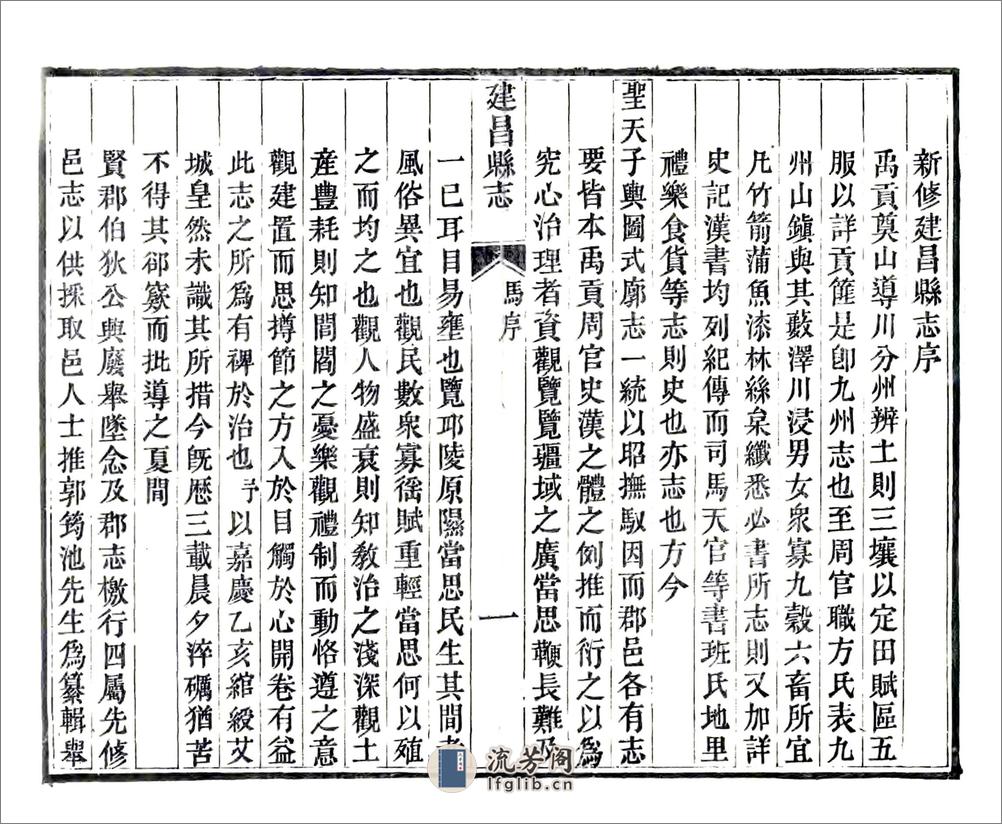 新修建昌縣志序
禹貢奠山導川分州辨土則三壤以定田賦區五
服以詳貢篚是卽九州志也至周官職方氏表九
州山鎭與其藪澤川浸男女衆寡九穀六畜所宜
凡竹箭蒲魚漆林絲枲纖悉必書所志則又加詳
史記漢書均列紀傳而司馬天官等書班氏地里
禮樂食貨等志則史也亦志也方今
聖天子輿圖式廓志一統以昭撫馭因而郡邑各有志
要皆本禹貢周官史漢之體之例推而衍之以爲
究心治理者資觀覽覽疆域之廣當思鞭長難及
建昌縣志
馬序
一
一已耳目易壅也覽邛陵原隰當思民生其間者
風俗異宜也觀民數衆寡徭賦重輕當思何以殖
之而均之也觀人物盛衰則知敎治之淺深觀土
產豐耗則知閭閻之憂樂觀禮制而動恪遵之意
觀建置而思撙節之方入於目觸於心開卷有益
此志之所爲有裨於治也予以嘉慶乙亥綰綬艾
城皇然未識其所措今旣歷三載晨夕淬礪猶苦
不得其郤窾而批導之夏間
賢郡伯狄公興廢舉墜念及郡志檄行四屬先修
邑志以供採取邑人士推郭筠池先生爲纂輯舉
流芳阁
lfglib.cn